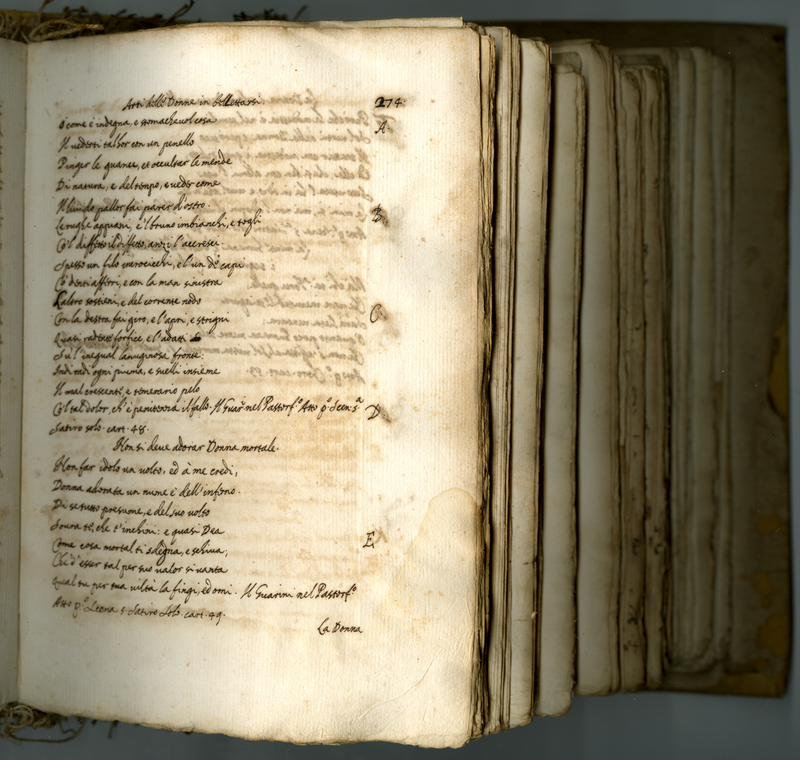 Arti delle Donne in bellettarsi.
274.
O come è indegna, e stomachevol cosa
A.
Il vederti talhor con un penello
Pinger le guance, et occultar le mende
Di natura, e del tempo, e veder come
Il livido pallor fai parer d'ostro.
B.
Le rughe appiani, e'l bruno imbianchi, e togli
Co'l difetto il difetto, anzi l'accresci.
Spesso un filo incrocicchi, e l'un de capi
Co' denti afferri, e con la man sinistra
L'altro sostieni, e del corrente nodo
C.
Con la destra fai giro, e l'apri, e strigni
Quasi radente forfice, e l'adatti
Su l'inegual lanuginosa fronte:
Indi radi ogni piuma, e svelli insieme
Il mal crescente, e temerario pelo
Co'l tal dolor, ch'è penitenza il fallo. Il Guar. nel Pastorf.º Atto p.º Scen. 5.ª
D
Satiro solo. cart. 48.
Non si deve adorar Donna mortale.
Non far idolo un volto, ed à me credi;
Donna adorata un nume è dell'inferno.
Di se tutto presume, e del suo volto
Sovra te, che t'inchini: e quasi Dea
E
Come cosa mortal ti sdegna, e schiva;
Che d'esser tal per suo valor si vanta
Qual tu per tua viltà la fingi, ed orni. Il Guarini nel Pastorf.º
Atto p.º Scena 5. Satiro solo. cart. 49.
La Donna